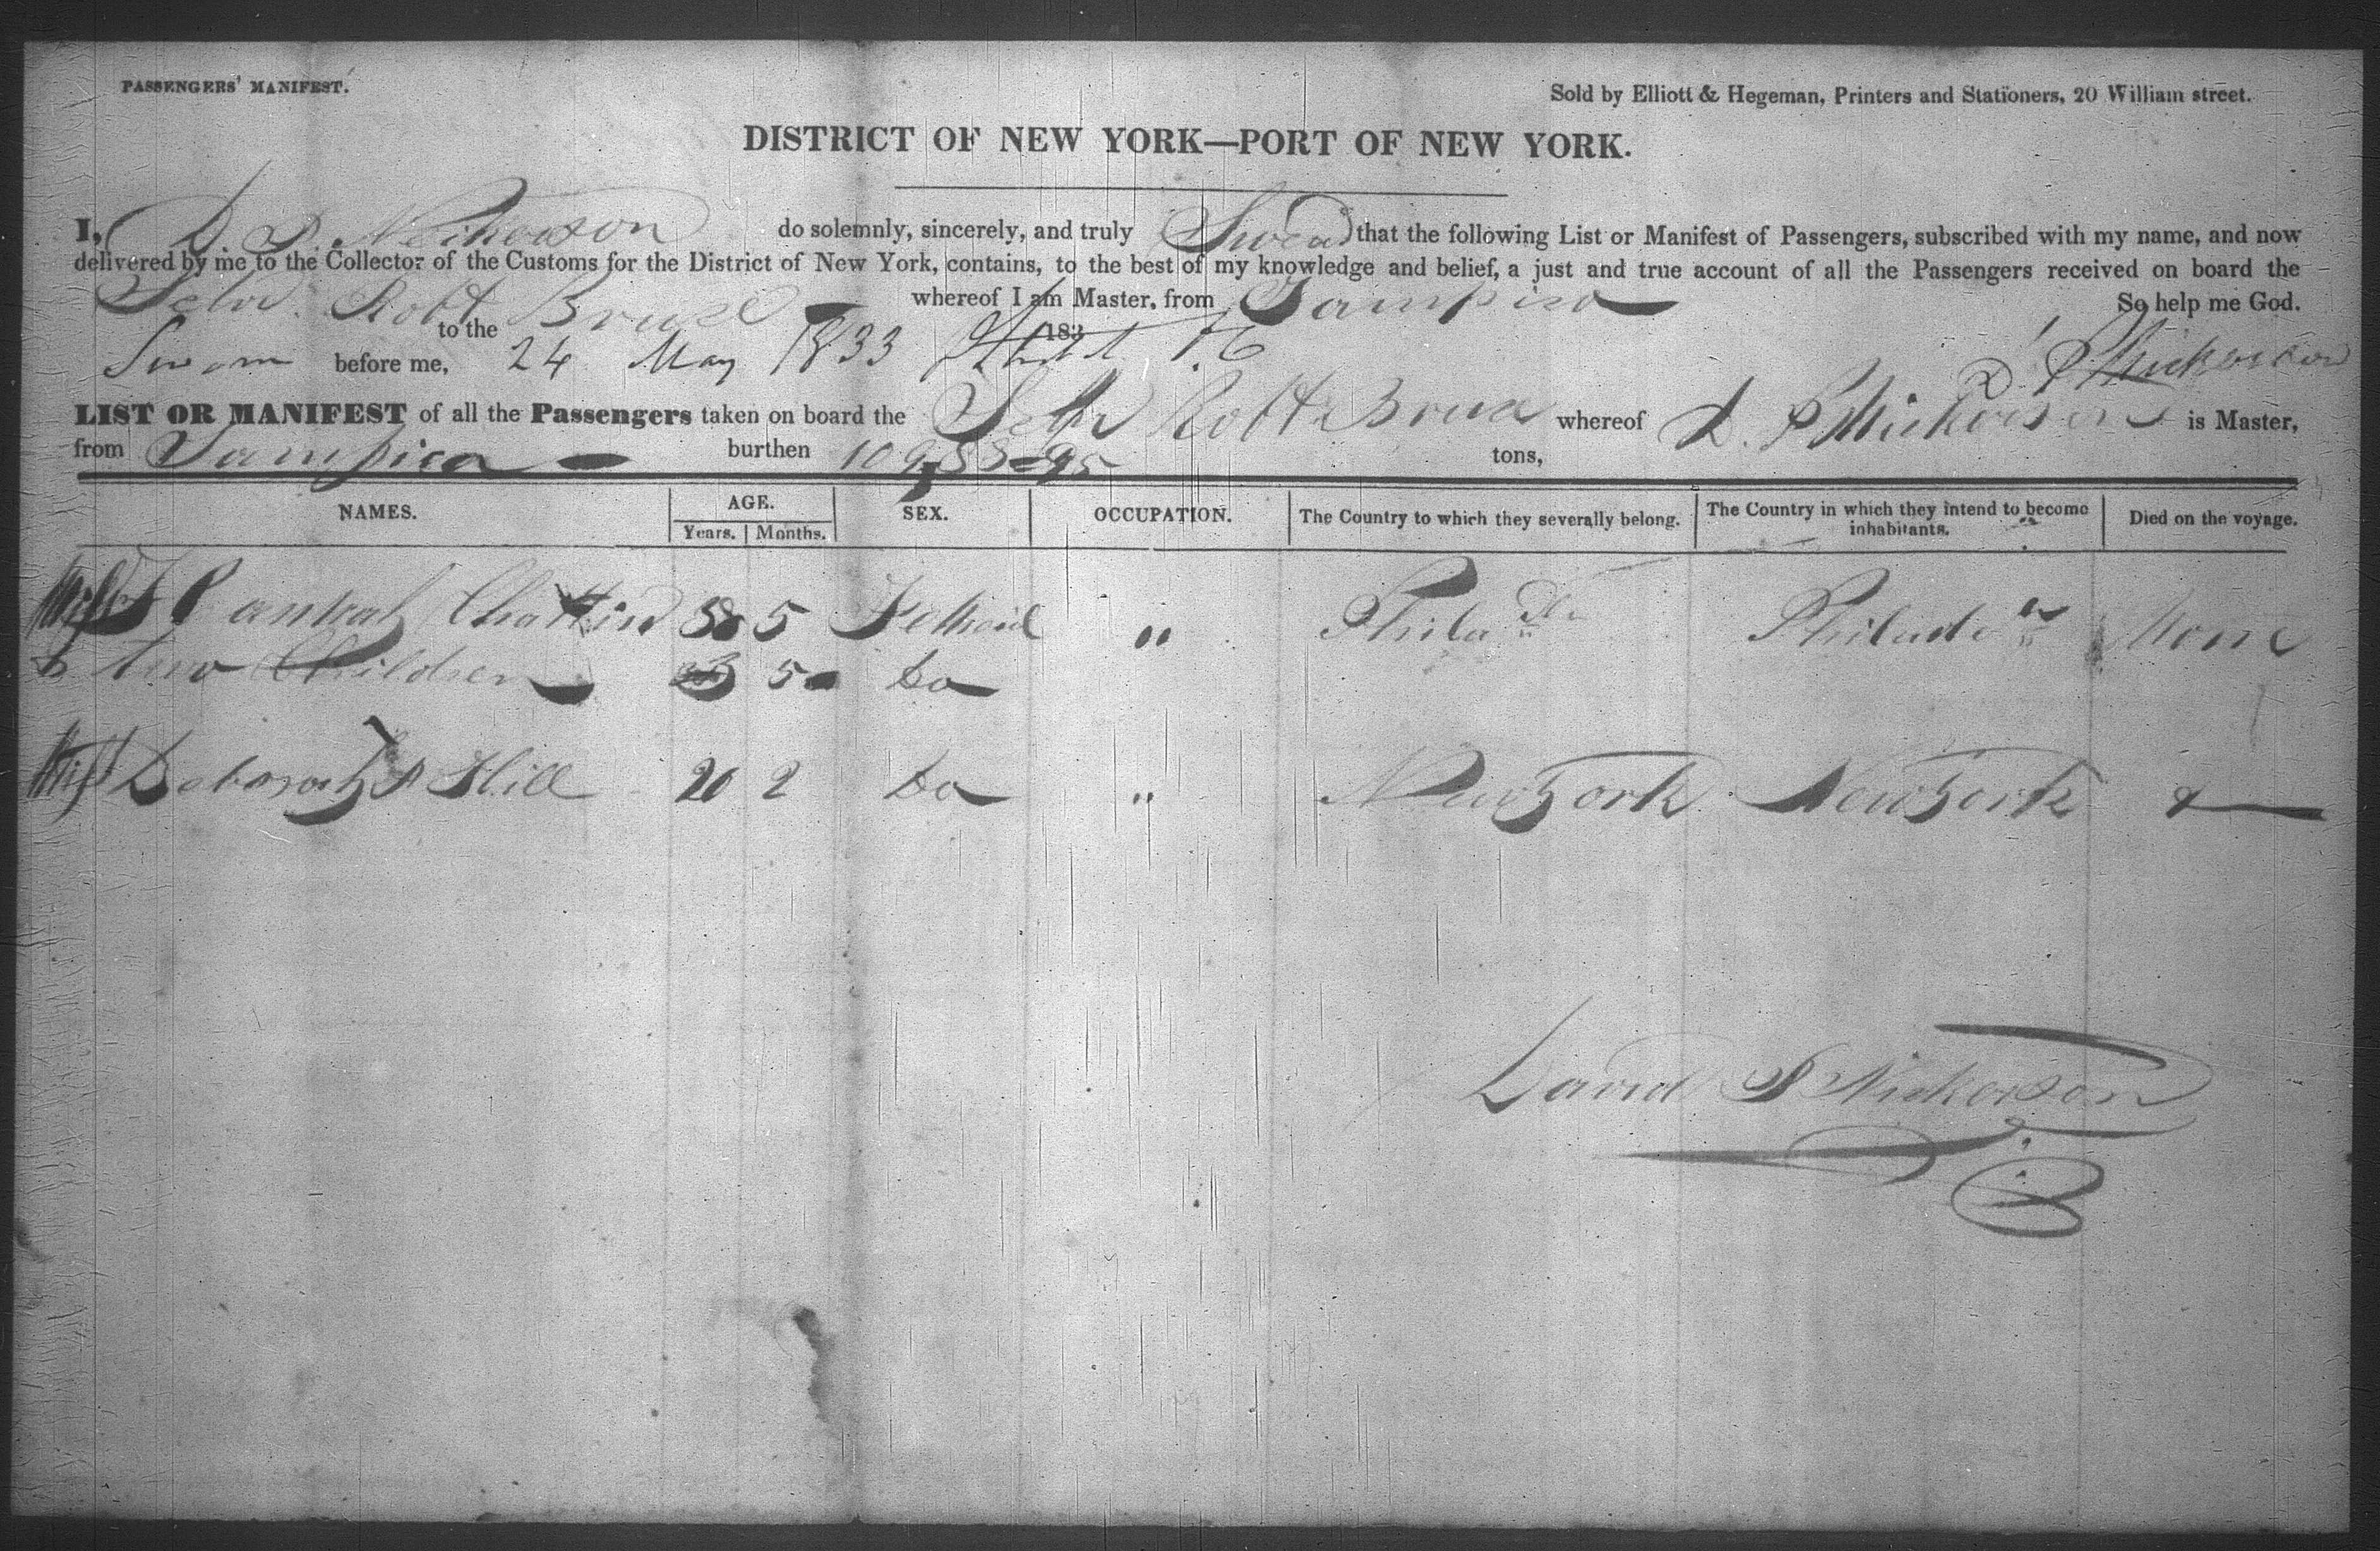 PASSENGERS' MANIFEST.
Sold by Elliott & Hegeman, Printers and Stationers, 20 William street.
DISTRICT OF NEW YORK—PORT OF NEW YORK.
I, D P Nickerson do solemnly, sincerely, and truly Swear that the following List or Manifest of Passengers, subscribed with my name, and now
delivered by me to the Collector of the Customs for the District of New York, contains, to the best of my knowledge and belief, a just and true account of all the Passengers received on board the
Schr. Robt Bruce whereof I am Master, from Tampico So help me God.
to the 183
Sworn before me, 24 May 1833 D. P Nickerson
LIST OR MANIFEST of all the Passengers taken on board the Schr Robt Bruce whereof D. P Nickerson is Master,
from Tampico burthen 109 tons,
NAMES. AGE. SEX. OCCUPATION. The Country to which they severally belong. The Country in which they intend to become inhabitants. Died on the voyage.
Years. Months.
5 " None
& two Children 5 Do
Miss Deborah P Hill 20 2 Do " New York New York
David P Nickerson